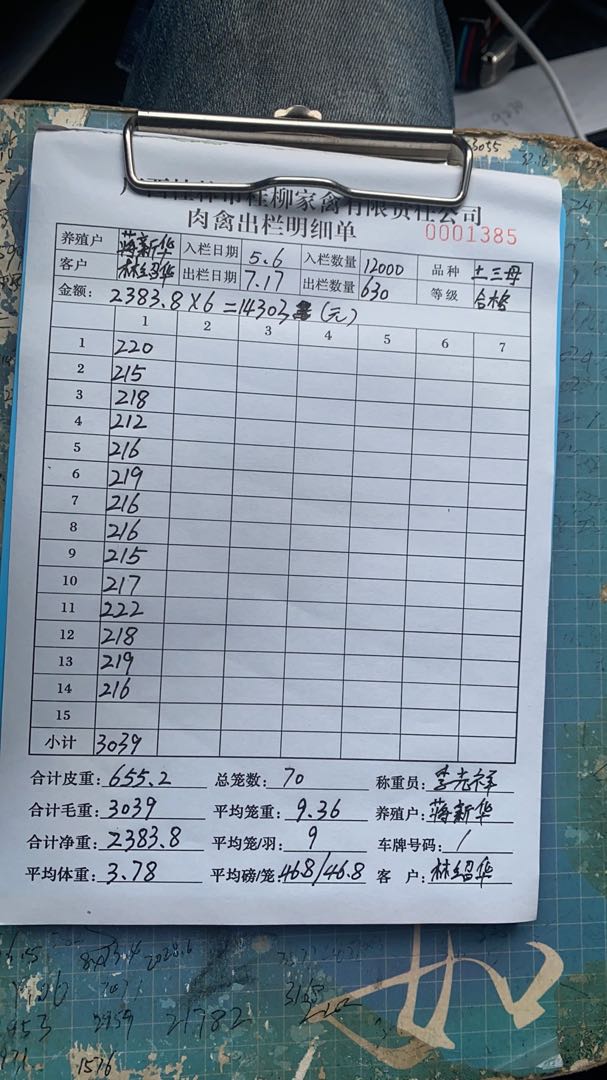 桂柳家禽有限责任公司
肉禽出栏明细单 0001385
养殖户 蒋新华 入栏日期 5.6 入栏数量 12000 品种 土三母
客户 林绍华 出栏日期 7.17 出栏数量 630 等级 合格
金额: 2383.8×6=14303 (元)
1 2 3 4 5 6 7
1 220
2 215
3 218
4 212
5 216
6 219
7 216
8 216
9 215
10 217
11 222
12 218
13 219
14 216
15
小计 3039
合计皮重: 655.2 总笼数: 70 称重员: 李光祥
合计毛重: 3039 平均笼重: 9.36 养殖户: 蒋新华
合计净重: 2383.8 平均笼/羽: 9 车牌号码: /
平均体重: 3.78 平均磅/笼: 46.8/46.8 客 户: 林绍华
3165
953 2959 21782
1576